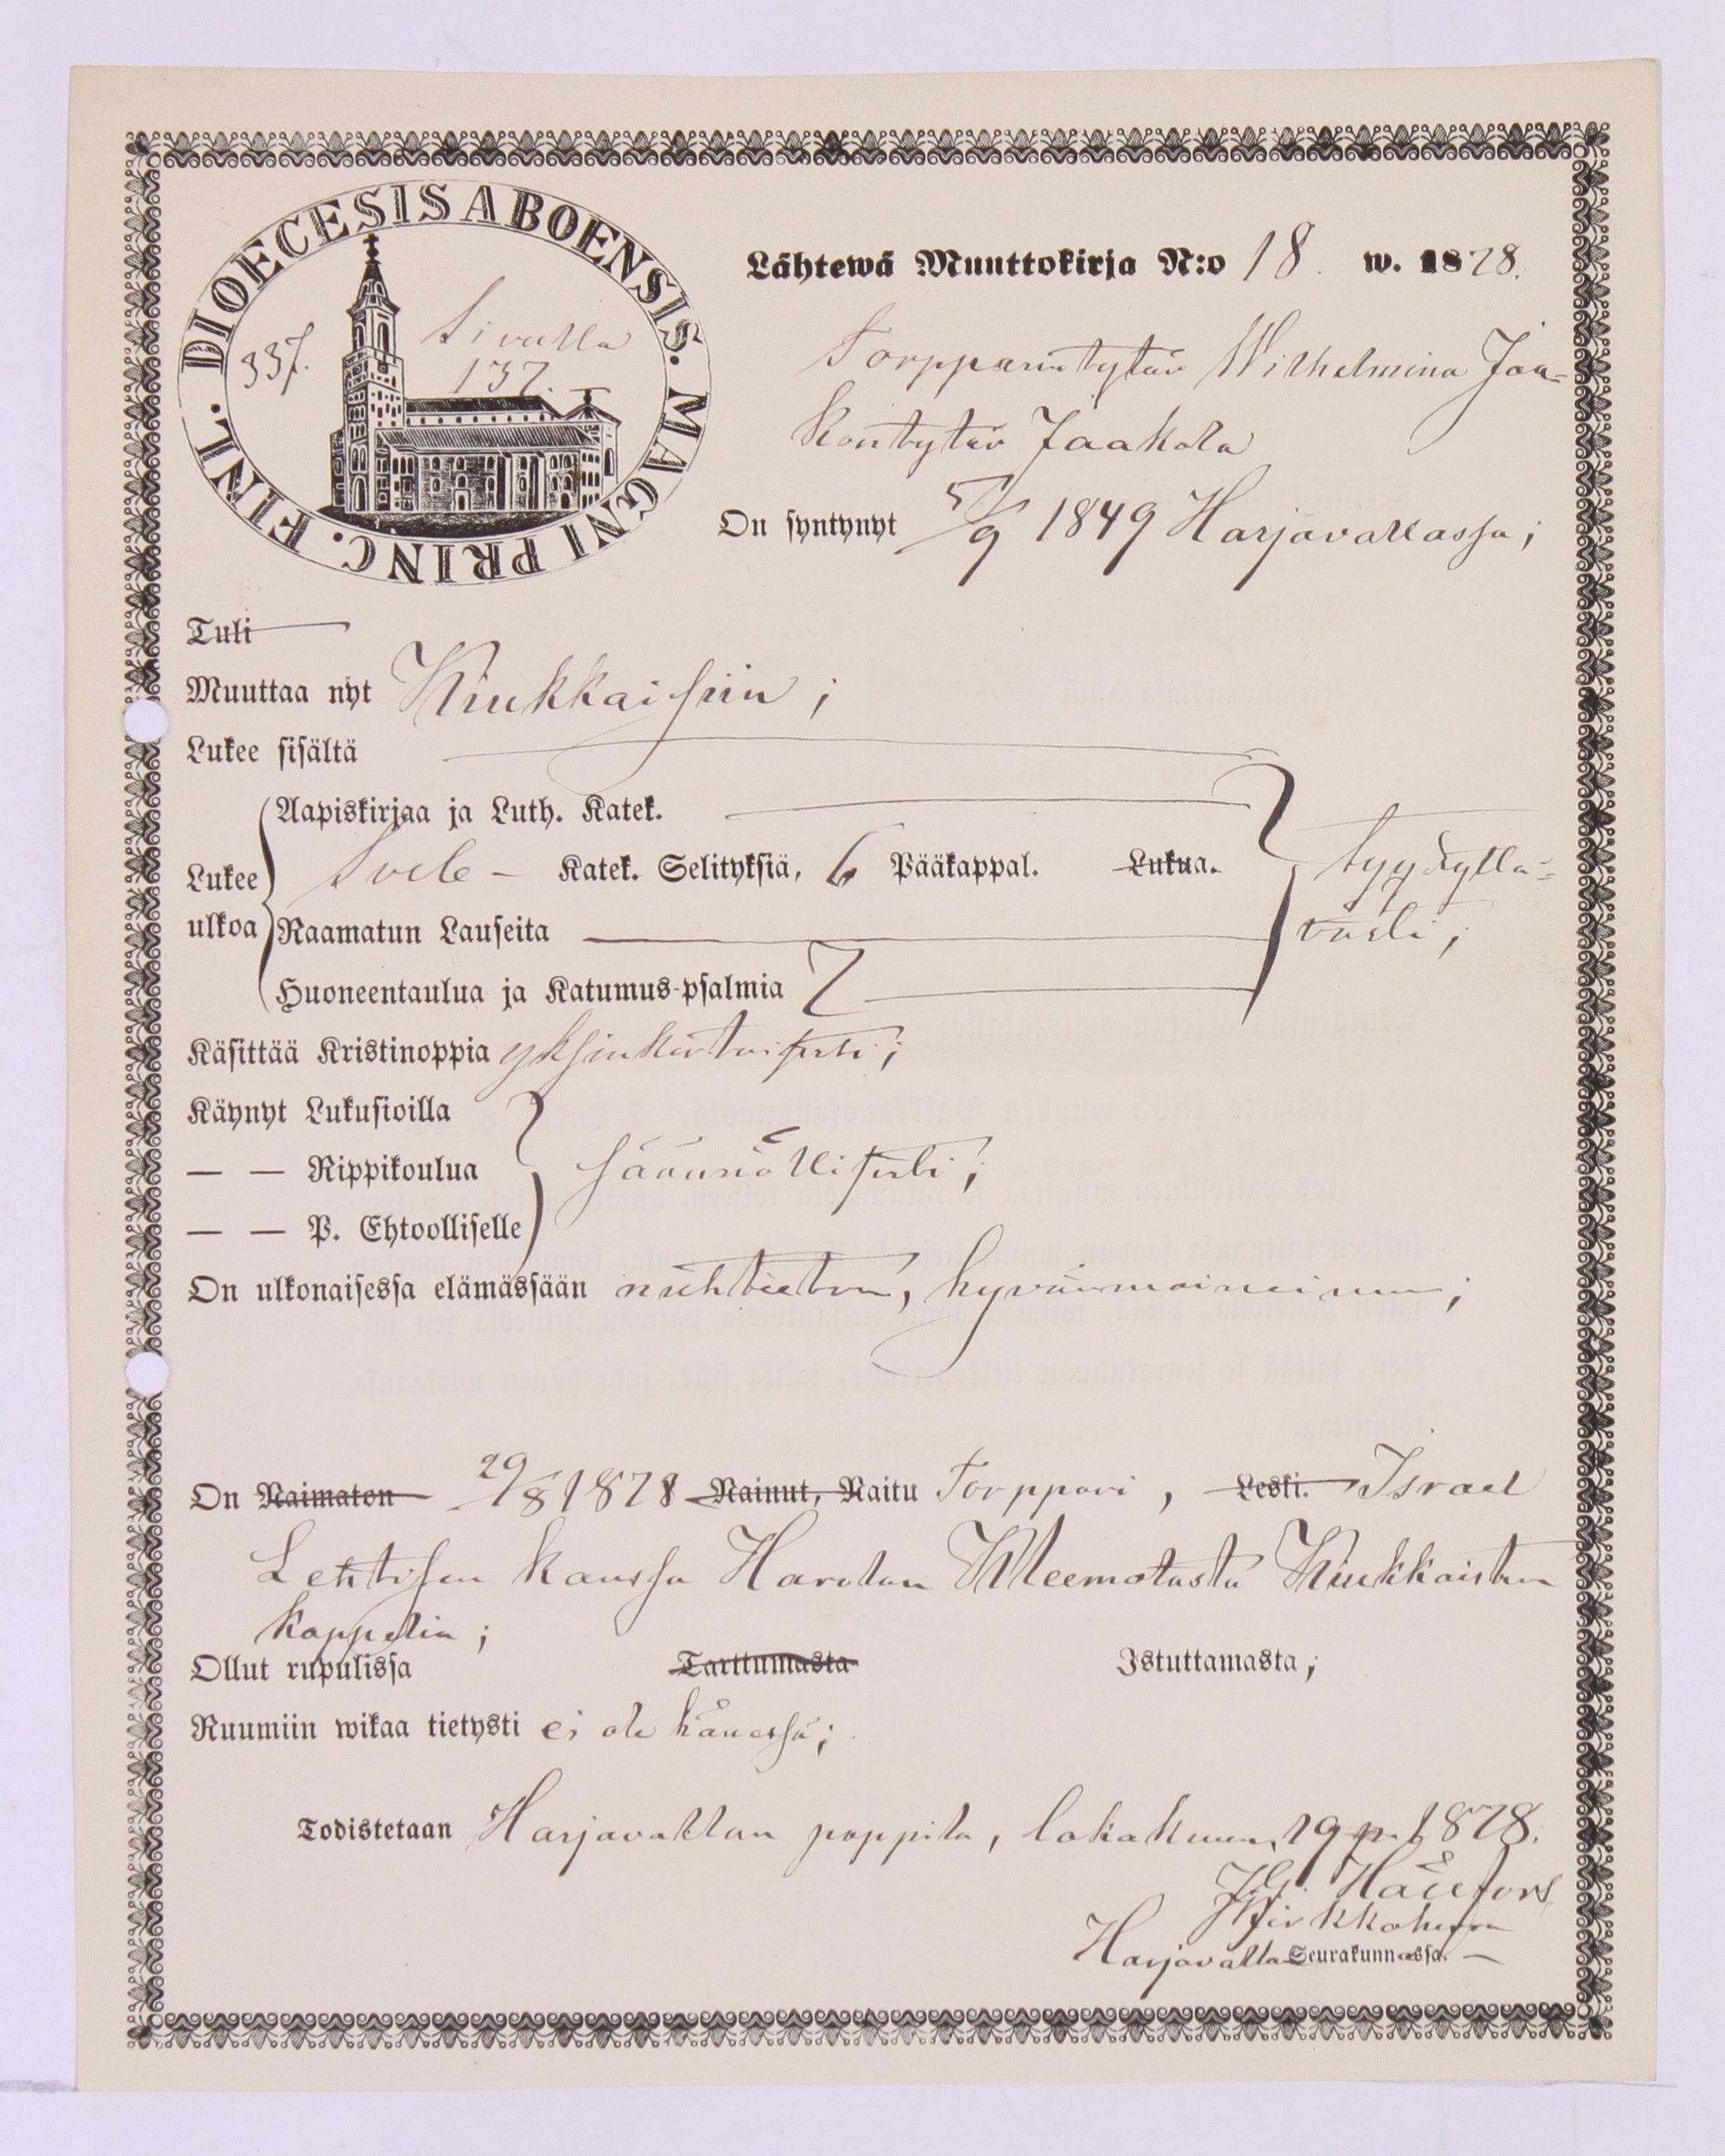 DIOECESIS ABOENSIS. MAGNI PRINC. FINL.
337. Sivulla
137.
Lähtewä Muuttokirja N:o 18. w. 1878.
Torpparintytär Wilhelmina Jaa-
kontytär Jaakola
On syntynyt 5/9 1849 Harjavallassa;
Tuli
Muuttaa nyt Kiukkaisiin;
Lukee sisältä
Aapiskirjaa ja Luth. Katek.
Lukee Sveb – Katek. Selityksiä, 6 Pääkappal. Lukua. tyydyttä-
ulkoa Raamatun Lauseita västi;
Huoneentaulua ja Katumus-psalmia 7
Käsittää Kristinoppia yksinkertaisesti;
Käynyt Lukusioilla
— — Rippikoulua säännöllisesti;
— — P. Ehtoolliselle
On ulkonaisessa elämässään nuhteeton, hyvänmaineinen;
On Naimaton 29/8 1878 Nainut, Naitu Torppari, Leski. Israel
Lehtisen kanssa Harolan Kleemolasta Kiukkaisten
kappelia;
Ollut rupulissa Tarttumasta Istuttamasta;
Ruumiin wikaa tietysti ei ole hänessä;
Todistetaan Harjavallan pappila, lokakuun 19 p. 1878.
Kirkkoherra
Harjavalla Seurakunnassa. –